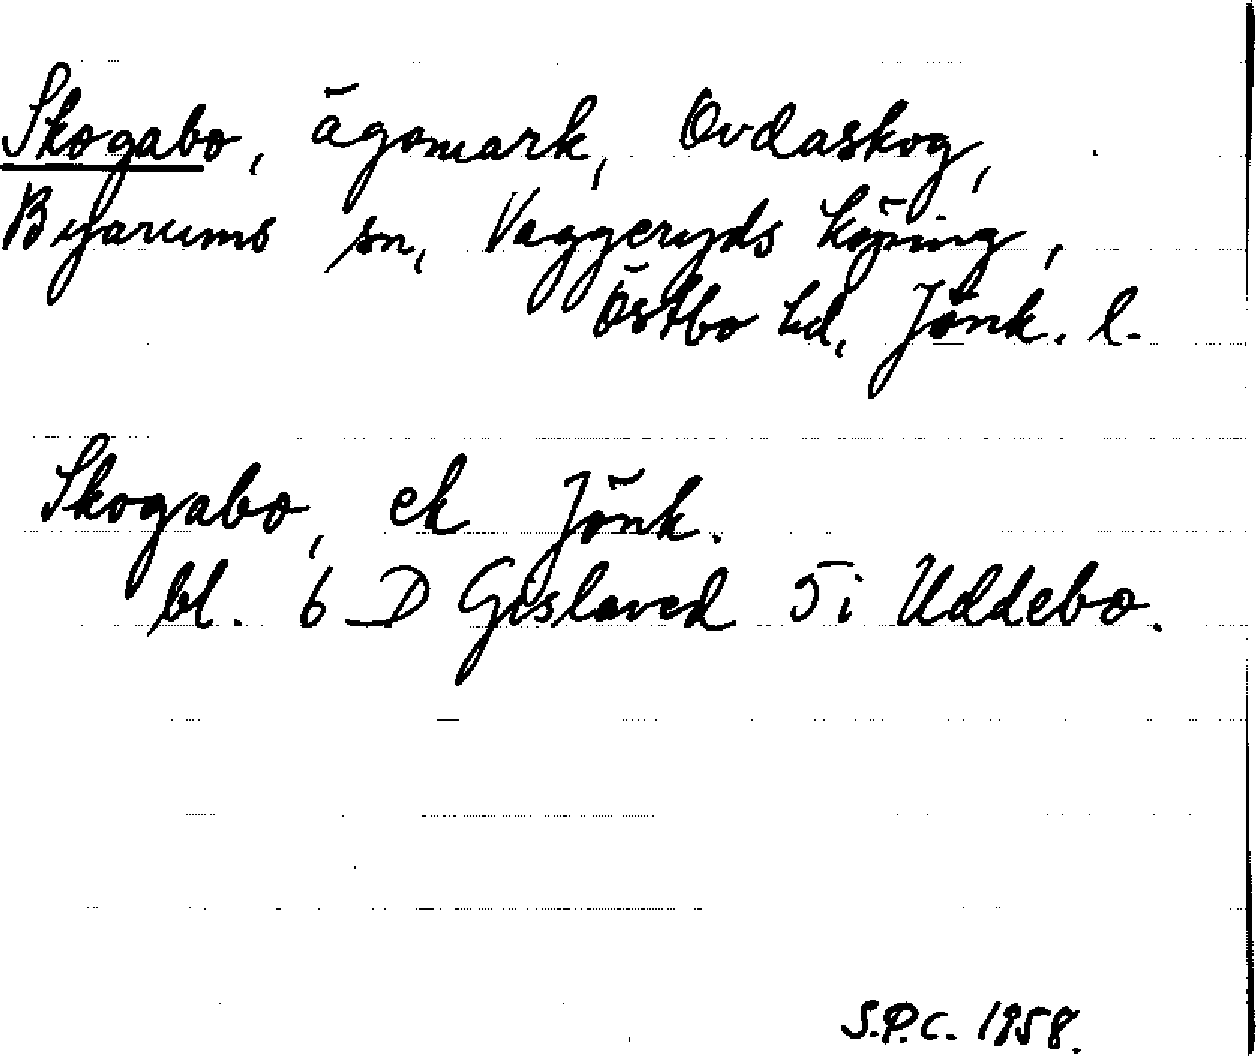 Skogabo, ägomark, Ovdaskog,
Byarums sn, Vaggeryds köping,
Östbo hd, Jönk. l.
Skogabo, ek Jönk.
bl. 6 D Gislaved 5i Uddebo.
S.P.C. 1958.